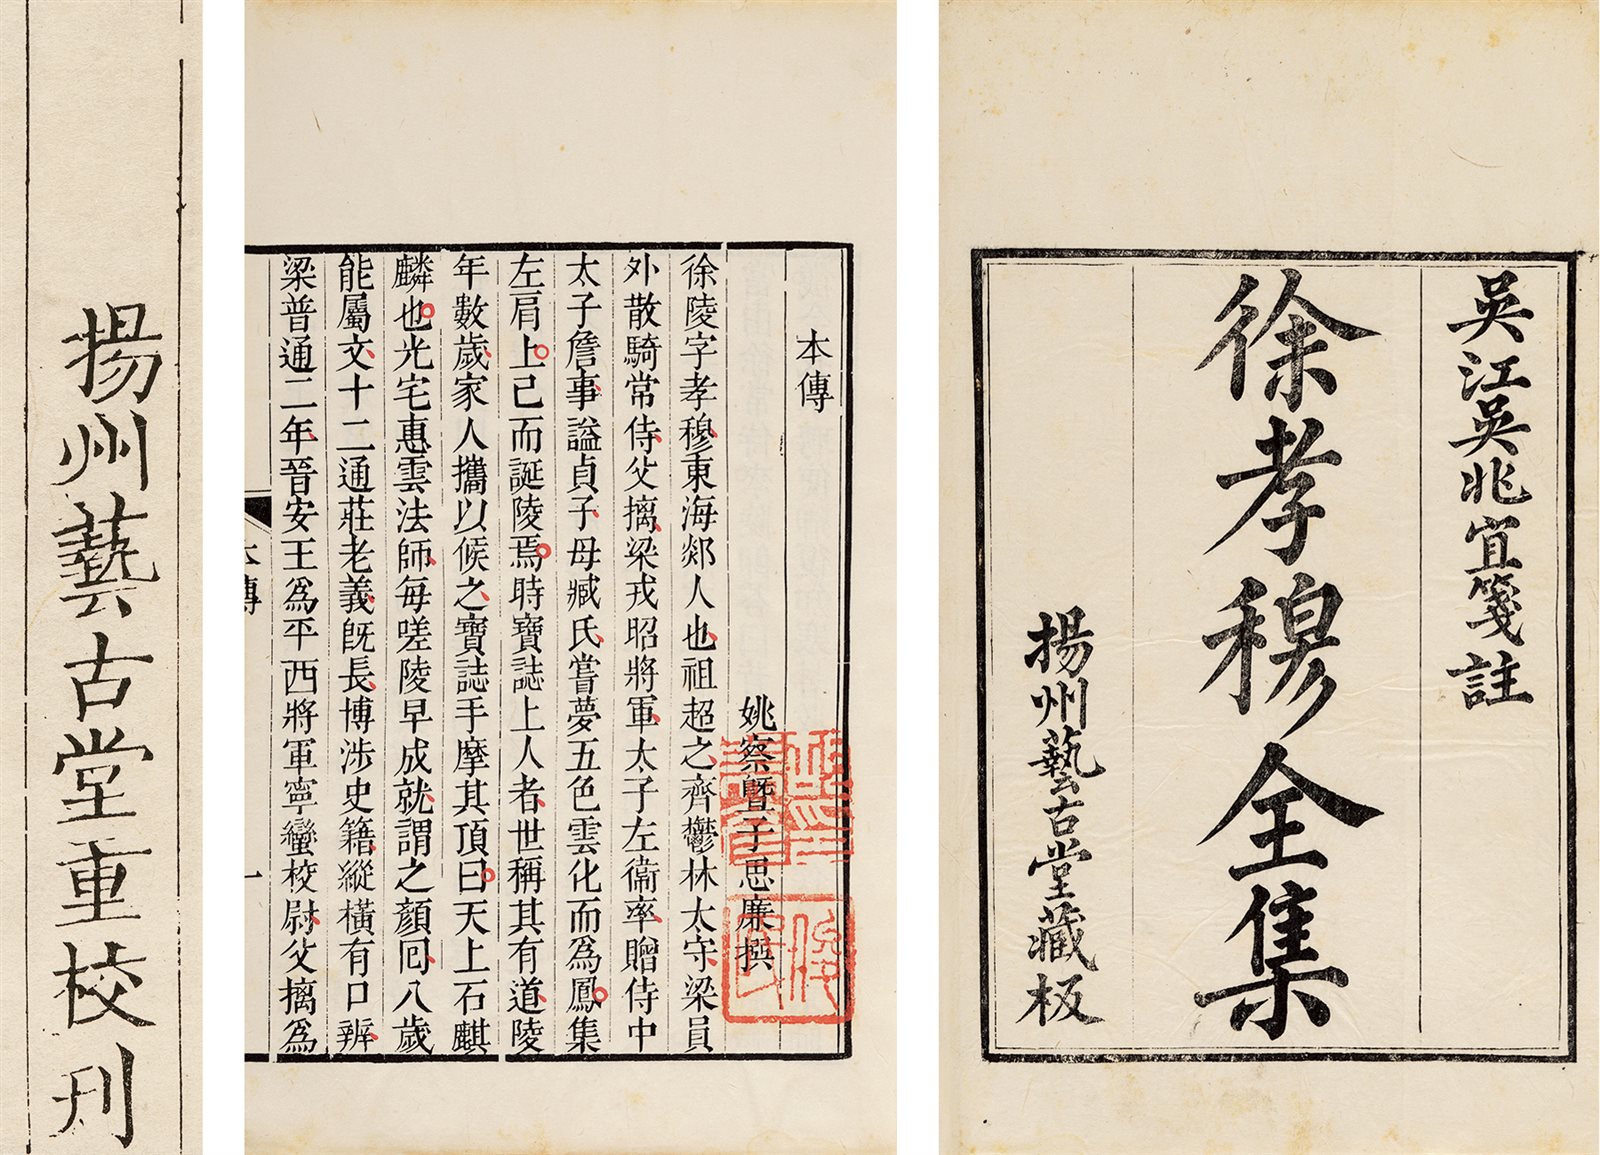 吳江吳兆宜箋註
徐孝穆全集
揚州藝古堂藏板
本傳
姚察曁子思廉撰
徐陵字孝穆東海郯人也祖超之齊鬱林太守梁員
外散騎常侍父摛梁戎昭將軍太子左衞率贈侍中
太子詹事謚貞子母臧氏嘗夢五色雲化而爲鳳集
左肩上己而誕陵焉時寶誌上人者世稱其有道陵
年數歲家人攜以候之寶誌手摩其頂曰天上石麒
麟也光宅惠雲法師每嗟陵早成就謂之顏回八歲
能屬文十二通莊老義旣長博涉史籍縱橫有口辨
梁普通二年晉安王爲平西將軍寧蠻校尉父摛爲
本傳
一
揚州藝古堂重校刋